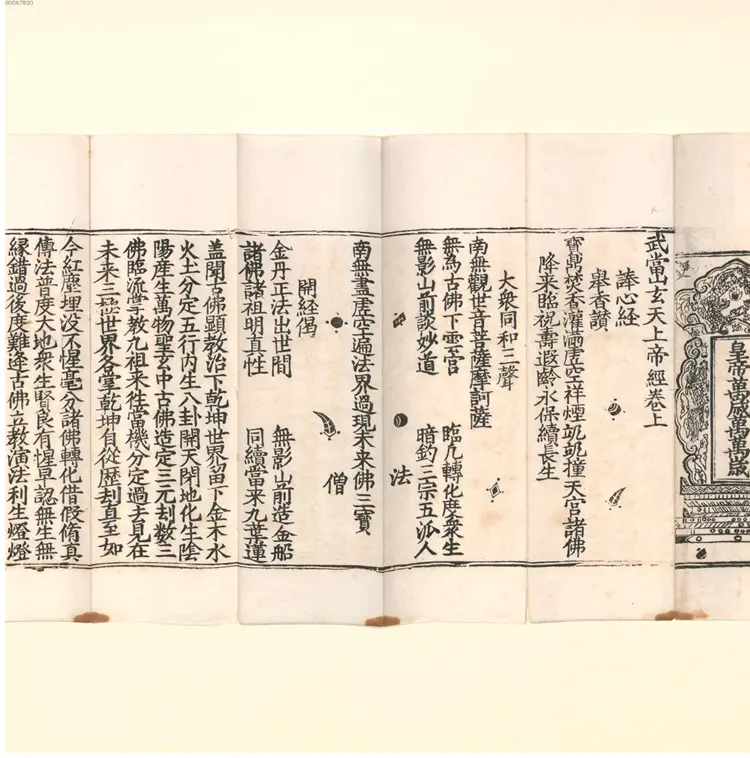 皇帝萬歲萬萬歲
武當山玄天上帝經卷上
諱心經
舉香讚
寳鼎焚香瀰滿虛空祥煙竑竑撞天宮諸佛
降来臨祝壽遐齡永保續長生
大衆同和三聲
南無觀世音菩薩摩訶薩
無為古佛下雲宮 臨凢轉化度衆生
無影山前談妙道 暗釣三宗五派人
法
南無盡虛空遍法界過現未来佛三寳
僧
開經偈
金丹正法出世間 無影山前造金船
諸佛諸祖明真性 同續當来九葉蓮
盖聞古佛顕教治下乾坤世界留下金木水
火土分定五行内生八卦開天閉地化生陰
陽産生萬物聖玄中古佛造定三元刼数三
佛臨流掌教九祖来徃當機分定過去見在
未来三世世界各掌乾坤自從歷刼直至如
今紅塵埋没不惺毫分諸佛轉化借假脩真
傳法普度大地衆生賢良有惺早認無生無
縁錯過後度難逢古佛立教演法利生燈燈